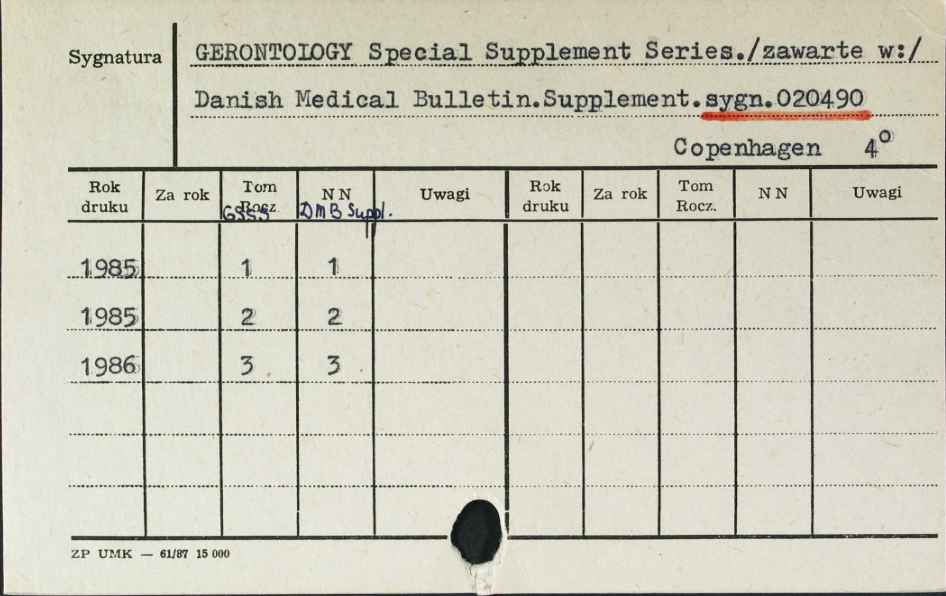 Sygnatura
GERONTOLOGY Special Supplement Series./zawarte w:/
Danish Medical Bulletin.Supplement.sygn.020490
Copenhagen 4°
Rok druku Za rok Tom Rocz. N N Uwagi Rok druku Za rok Tom Rocz. N N Uwagi
GSSS DMB Suppl.
1985 1 1
1985 2 2
1986 3 3
ZP UMK — 61/87 15 000